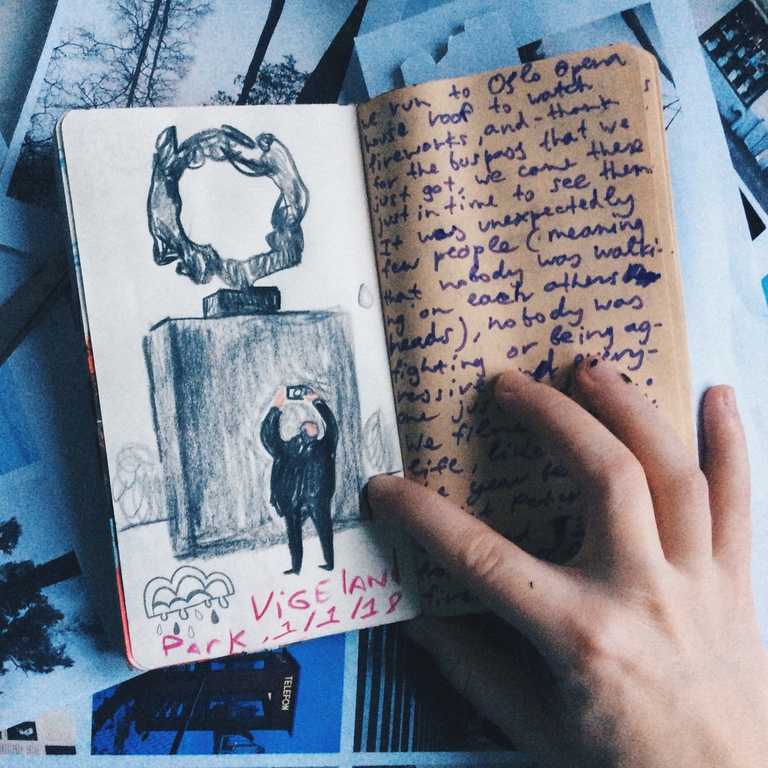 ViGElAND
PArK, 1/1/18
we run to Oslo Opera
house roof to watch
fireworks, and - thank
for the buspass that we
just got, we came there
just in time to see them
It was unexpectedly
few people (meaning
that nobody was walki-
ng on each others
heads), nobody was
fighting or being ag-
ressive and every-
one jus
We film
life, like
year be
TELEFON